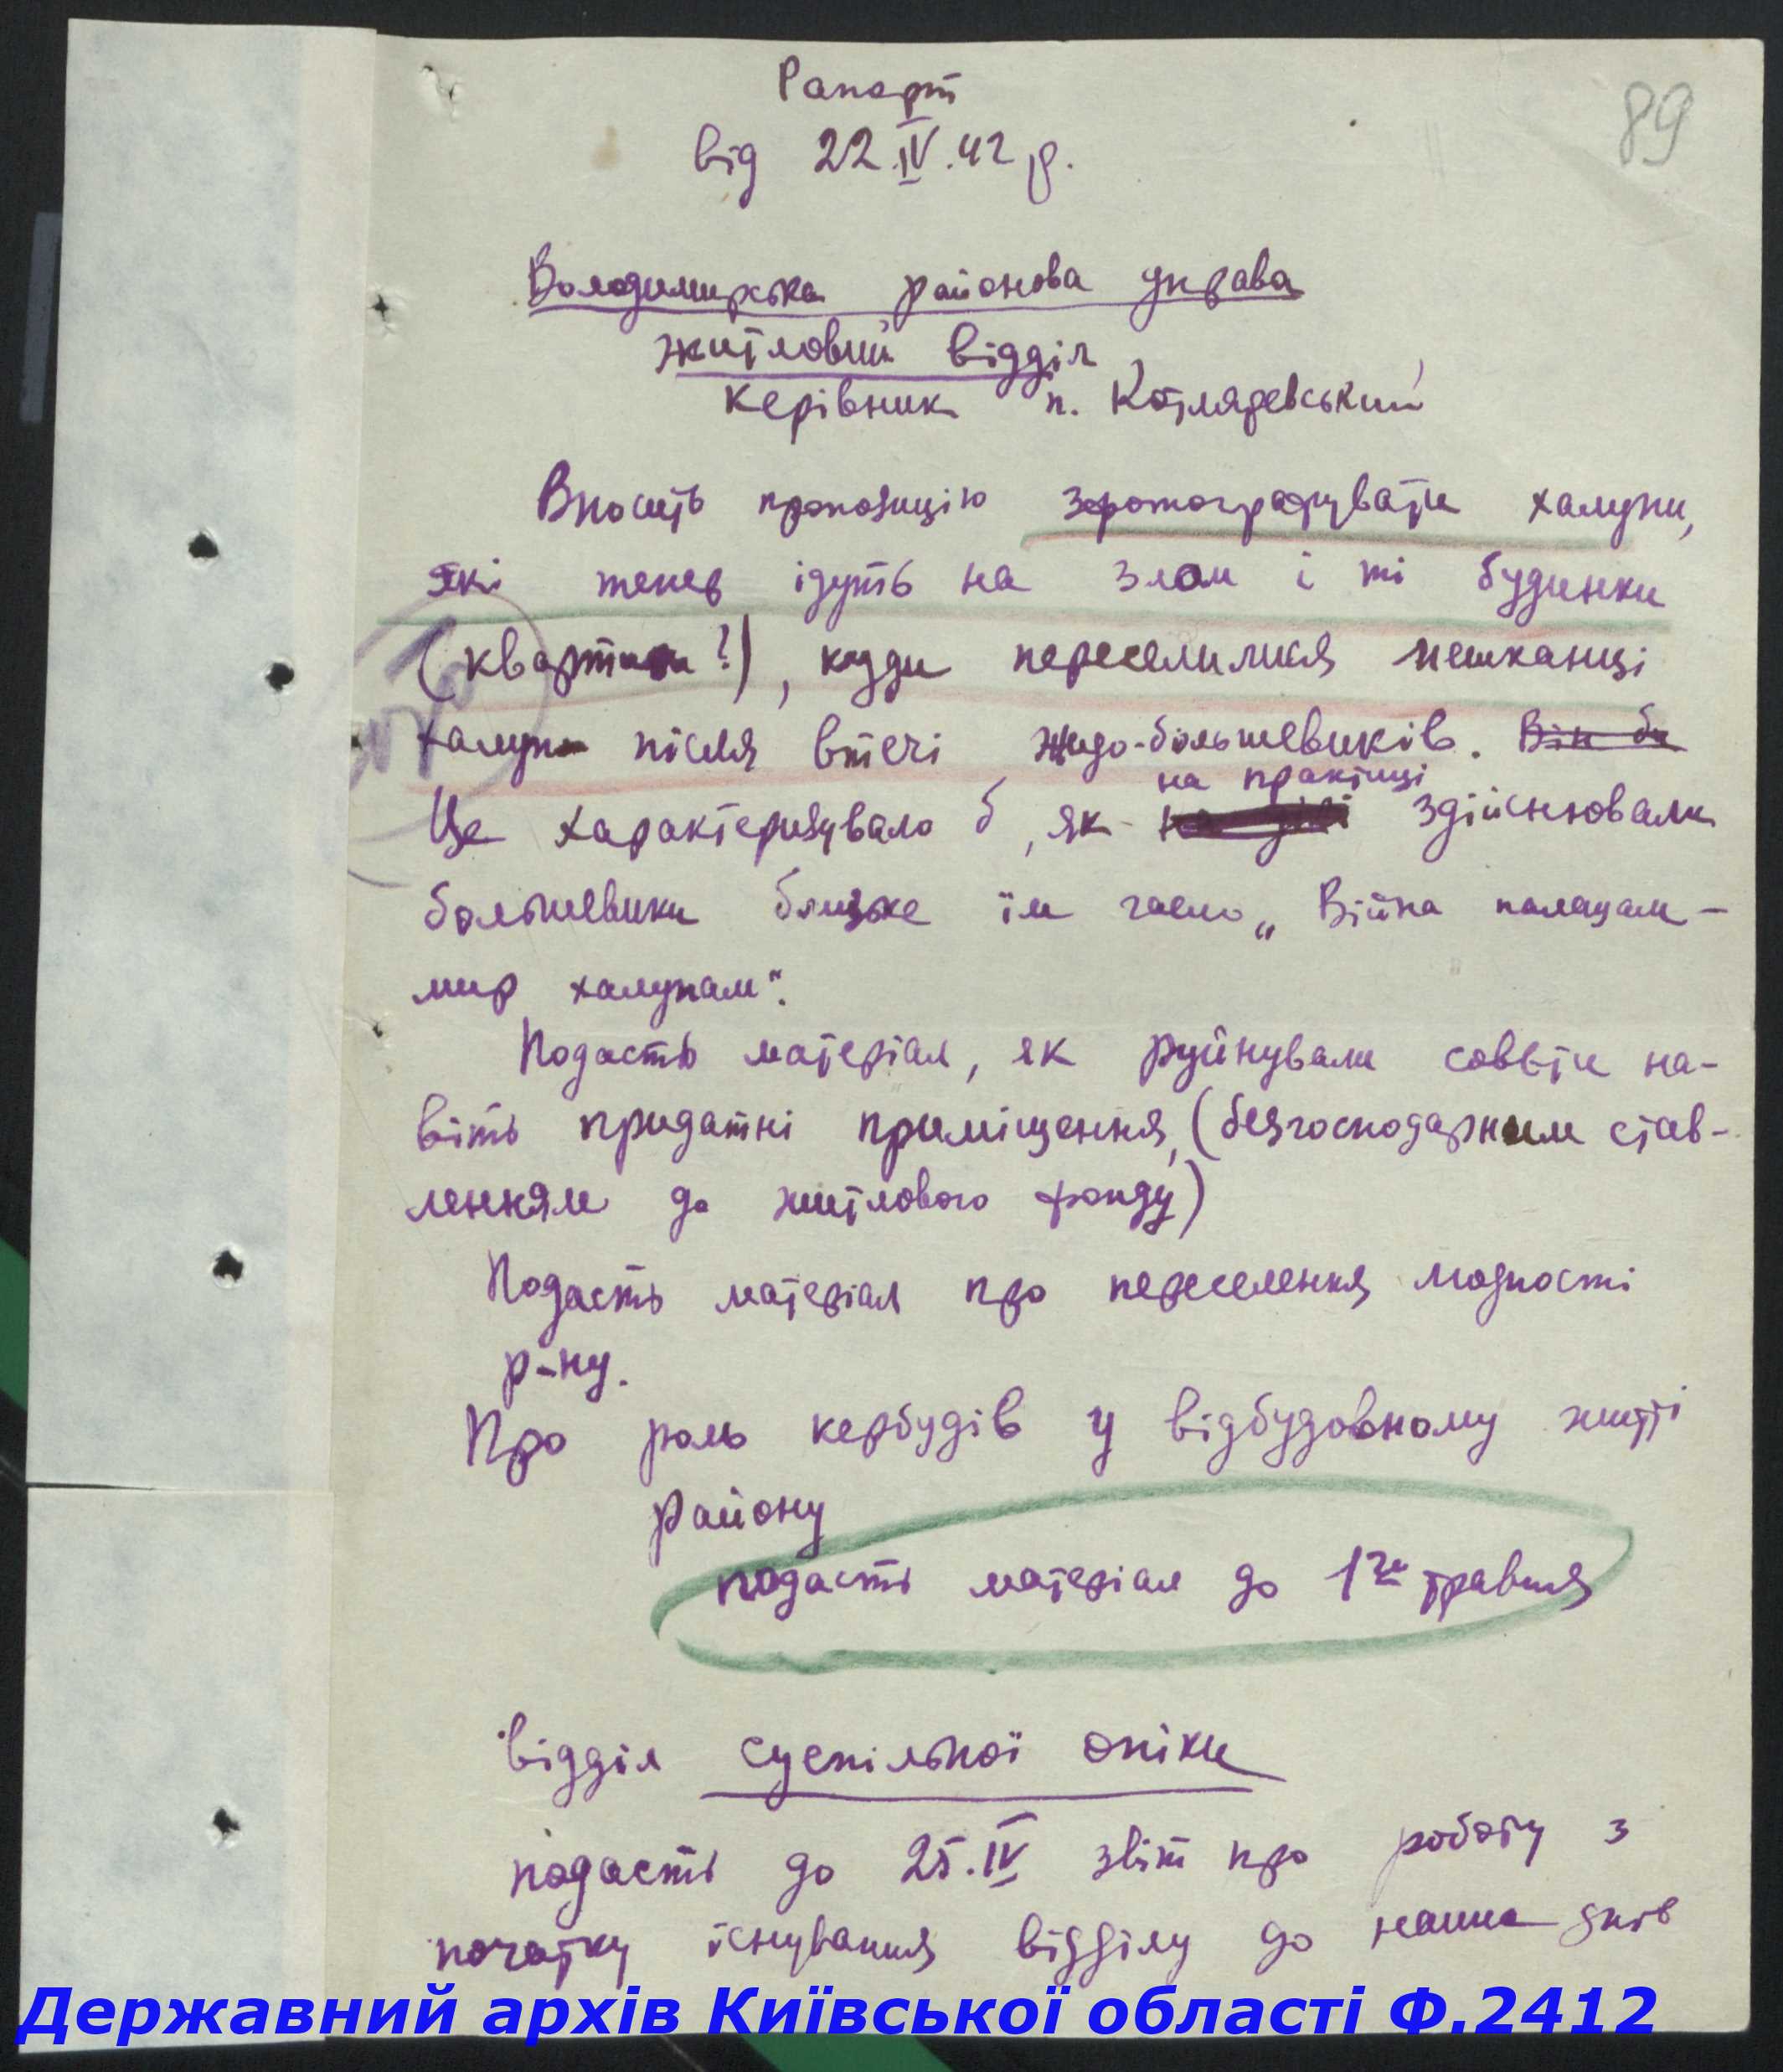 89
Рапорт
від 22.IV.42 р.
Володимирська районова управа
житловий відділ
керівник п. Котляревський
Вносить пропозицію зфотографувати халупи,
які тепер ідуть на злом і ті будинки
(квартири?), куди переселилися мешканці
халуп після втечі жидо-більшевиків. Він би
на практиці
Це характеризувало б, як здійснювали
большевики близьке їм гасло „Війна палацам –
мир халупам“.
Подасть матеріал, як руйнували совєти на-
віть придатні приміщення, (безгосподарним став-
ленням до житлового фонду)
Подасть матеріал про переселення людності
р-ну.
Про роль кербудів у відбудовному житті
району
подасть матеріал до 1го травня
Відділ суспільної опіки
подасть до 25.IV звіт про роботу з
початку існування відділу до наших днів
Державний архів Київської області Ф.2412